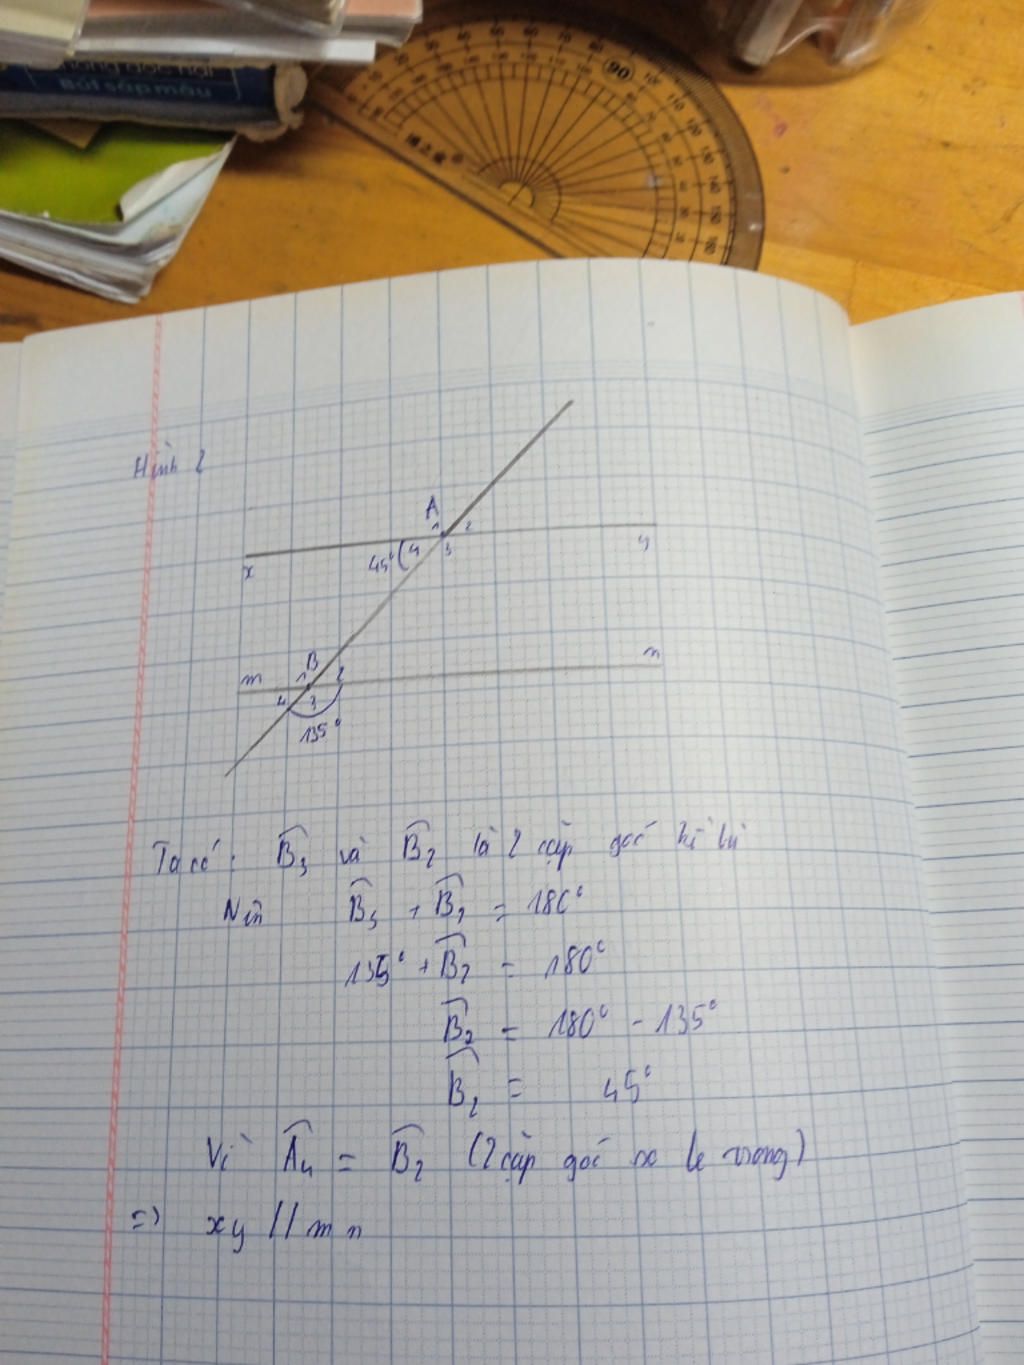 Bút sáp màu
90
Hình 2
A
1 2
45° 4 3
x y
B
m 1 2 n
4 3
135°
Ta có: B̂₃ và B̂₂ là 2 cặp góc kề bù
Nên B̂₃ + B̂₂ = 180°
135° + B̂₂ = 180°
B̂₂ = 180° - 135°
B̂₂ = 45°
Vì Â₄ = B̂₂ (2 cặp góc so le trong)
=> xy // mn